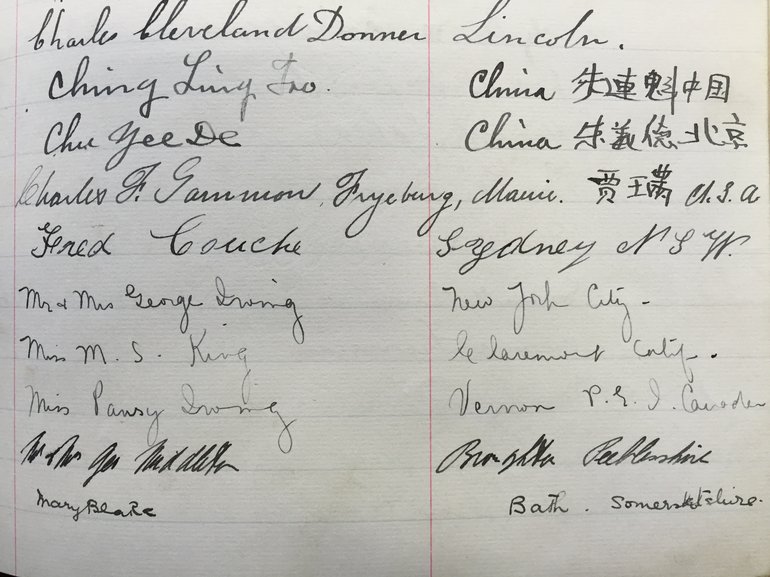 Charles Cleveland Donner Lincoln.
Ching Ling Foo. China 朱連魁中国
Chu Yee De China 朱義德北京
Charles F. Gammon, Fryeburg, Maine. 賈 U.S.A
Fred Couche Sydney N S W.
Mr & Mrs George Irving New York City -
Miss M. S. King Claremont Calif.
Miss Pansy Irving Vernon P.E.I. Canada
Mr & Mrs Geo Middleton Broughton Peeblesshire
Mary Blake Bath. Somersetshire.